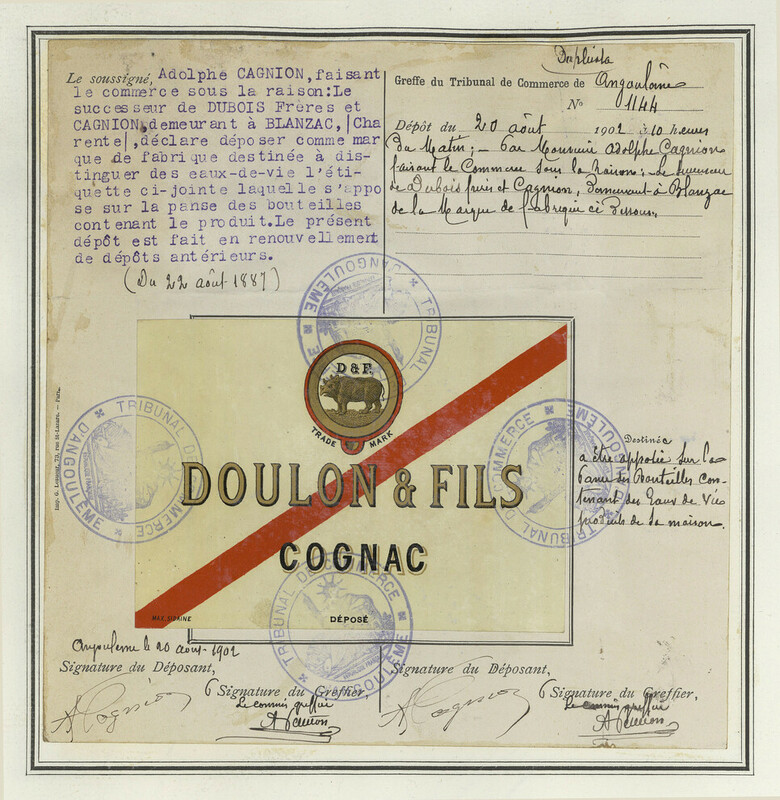 Le soussigné, Adolphe CAGNION, faisant
le commerce sous la raison:Le
successeur de DUBOIS Frères et
CAGNION,demeurant à BLANZAC,|Cha
rente|,déclare déposer comme mar
que de fabrique destinée à dis-
tinguer des eaux-de-vie l'éti-
quette ci-jointe laquelle s'appo
se sur la panse des bouteilles
contenant le produit.Le présent
dépôt est fait en renouvellement
de dépôts antérieurs.
(Du 22 août 1887)
Duplicata
Greffe du Tribunal de Commerce de Angoulême
No 1144
Dépôt du 20 août 1902 à 10 heures
du Matin; – Par Monsieur Adolphe Cagnion
faisant le Commerce sous la raison: Le successeur
de Dubois frères et Cagnion, demeurant à Blanzac
de la Marque de fabrique ci Dessous.
TRIBUNAL DE COMMERCE
D'ANGOULÊME
D & F.
TRADE MARK
DOULON & FILS
COGNAC
DÉPOSÉ
MAX. SIDAINE
TRIBUNAL DE COMMERCE
D'ANGOULÊME
TRIBUNAL DE COMMERCE
D'ANGOULÊME
TRIBUNAL DE COMMERCE
D'ANGOULÊME
Destinée
a être apposée sur la
Panse des Bouteilles con-
tenant des Eaux de Vie
produits de sa maison.
Angoulême le 20 août 1902
Signature du Déposant,
6 Signature du Greffier,
Le commis greffier
A Cagnion
Signature du Déposant,
6 Signature du Greffier,
Le commis greffier
A Cagnion